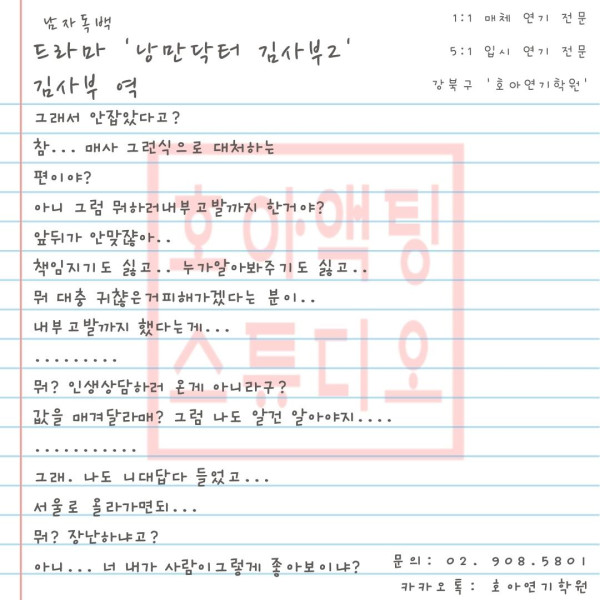 남자독백
1:1 매체 연기 전문
드라마 '낭만닥터 김사부2'
5:1 입시 연기 전문
김사부 역
강북구 '호아연기학원'
그래서 안잡았다고?
참... 매사 그런식으로 대처하는
편이야?
아니 그럼 뭐하러내부고발까지 한거야?
앞뒤가 안맞쟎아..
책임지기도 싫고.. 누가알아봐주기도 싫고..
뭐 대충 귀챦은거피해가겠다는 분이..
내부고발까지 했다는게...
.........
뭐? 인생상담하러 온게 아니라구?
값을 매겨달라매? 그럼 나도 알건 알아야지....
...........
그래. 나도 니대답다 들었고...
서울로 올라가면되...
뭐? 장난하냐고?
아니... 너 내가 사람이그렇게 좋아보이냐?
문의: 02. 908.5801
카카오톡: 호아연기학원
호아액팅
스튜디오